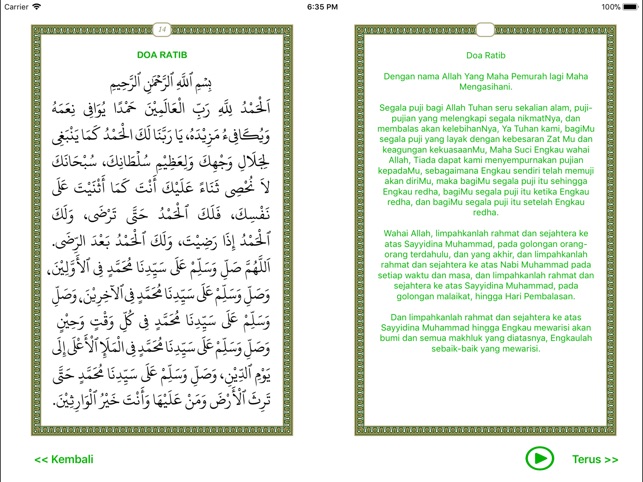 Carrier
6:35 PM
100%
14
DOA RATIB
بِسْمِ اللَّهِ الرَّحْمَٰنِ الرَّحِيْمِ
اَلْحَمْدُ لِلَّهِ رَبِّ الْعَالَمِيْنَ حَمْدًا يُوَافِي نِعَمَهُ
وَيُكَافِىءُ مَزِيْدَهُ، يَا رَبَّنَا لَكَ الْحَمْدُ كَمَا يَنْبَغِى
لِجَلَالِ وَجْهِكَ وَلِعَظِيْمِ سُلْطَانِكَ، سُبْحَانَكَ
لَا نُحْصِى ثَنَاءً عَلَيْكَ أَنْتَ كَمَا أَثْنَيْتَ عَلَى
نَفْسِكَ، فَلَكَ الْحَمْدُ حَتَّى تَرْضَى، وَلَكَ
الْحَمْدُ إِذَا رَضِيْتَ، وَلَكَ الْحَمْدُ بَعْدَ الرِّضَى.
اَللَّهُمَّ صَلِّ وَسَلِّمْ عَلَى سَيِّدِنَا مُحَمَّدٍ فِى الْأَوَّلِيْنَ،
وَصَلِّ وَسَلِّمْ عَلَى سَيِّدِنَا مُحَمَّدٍ فِى الْآخِرِيْنَ، وَصَلِّ
وَسَلِّمْ عَلَى سَيِّدِنَا مُحَمَّدٍ فِى كُلِّ وَقْتٍ وَحِيْنٍ
وَصَلِّ وَسَلِّمْ عَلَى سَيِّدِنَا مُحَمَّدٍ فِى الْمَلَإِ الْأَعْلَى إِلَى
يَوْمِ الدِّيْنِ، وَصَلِّ وَسَلِّمْ عَلَى سَيِّدِنَا مُحَمَّدٍ حَتَّى
تَرِثَ الْأَرْضَ وَمَنْ عَلَيْهَا وَأَنْتَ خَيْرُ الْوَارِثِيْنَ.
Doa Ratib
Dengan nama Allah Yang Maha Pemurah lagi Maha
Mengasihani.
Segala puji bagi Allah Tuhan seru sekalian alam, puji-
pujian yang melengkapi segala nikmatNya, dan
membalas akan kelebihanNya, Ya Tuhan kami, bagiMu
segala puji yang layak dengan kebesaran Zat Mu dan
keagungan kekuasaanMu, Maha Suci Engkau wahai
Allah, Tiada dapat kami menyempurnakan pujian
kepadaMu, sebagaimana Engkau sendiri telah memuji
akan diriMu, maka bagiMu segala puji itu sehingga
Engkau redha, bagiMu segala puji itu ketika Engkau
redha, dan bagiMu segala puji itu setelah Engkau
redha.
Wahai Allah, limpahkanlah rahmat dan sejahtera ke
atas Sayyidina Muhammad, pada golongan orang-
orang terdahulu, dan yang akhir, dan limpahkanlah
rahmat dan sejahtera ke atas Nabi Muhammad pada
setiap waktu dan masa, dan limpahkanlah rahmat dan
sejahtera ke atas Sayyidina Muhammad, pada
golongan malaikat, hingga Hari Pembalasan.
Dan limpahkanlah rahmat dan sejahtera ke atas
Sayyidina Muhammad hingga Engkau mewarisi akan
bumi dan semua makhluk yang diatasnya, Engkaulah
sebaik-baik yang mewarisi.
<< Kembali
Terus >>